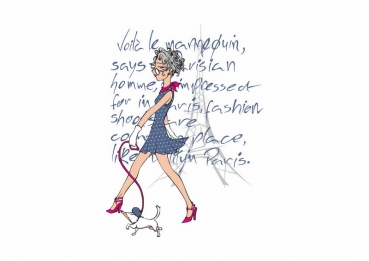 Voilà le mannequin,
says Parisian
homme, impressed
for in Paris fashion
shoots are
place,
like in Paris.